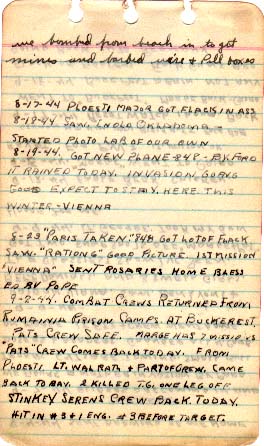 we bombed from beach in to get
mines and barbed wire & Pill boxes
8-17-44 PLOESTI MAJOR GOT FLACK IN ASS
8-18-44 SAW. ENOLA OKLAHOMA -
STARTED PHOTO LAB OF OUR OWN
8-19-44. GOT NEW PLANE 848 - BY. FORD
IT RAINED TODAY. INVASION GOING
GOOD EXPECT TO STAY. HERE THIS
WINTER - VIENNA
8-23 "PARIS TAKEN." 848 GOT LOT OF FLACK
SAW. "RATIONG" GOOD PICTURE. 1ST MISSION
"VIENNA" SENT ROSARIES HOME BLESS
ED BY POPE
9-2-44. COMBAT CREWS RETURNED FROM
RUMAINIA PRISON CAMPS. AT BUCKEREST.
PATS CREW SAFE. MARGE HAS 7 MISSIONS
"PATS" CREW COMES BACK TODAY. FROM
PLOESTI. LT. WALRATH & PART OF CREW. CAME
BACK TODAY. 2 KILLED T.G. ONE LEG OFF
STINKEY SERENS CREW BACK. TODAY.
HIT IN #3 & 1 ENG. #3 BEFORE TARGET.